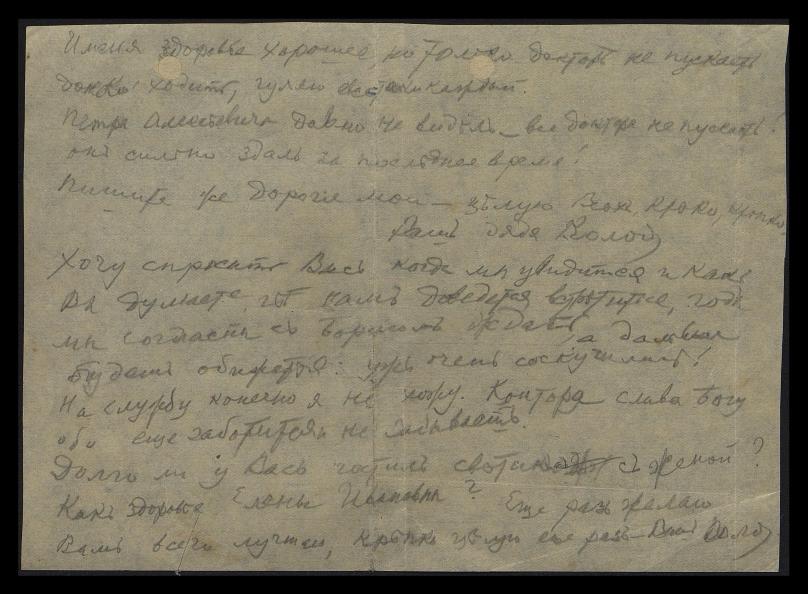 здоровье хорошее, но только докторъ не пускаетъ
ходить, гуляю
Петра Алексеевича давно не видѣлъ — все доктора не пускаютъ!
онъ сильно сдалъ за последнее время!
Пишите же дорогие мои — цѣлую Васъ крѣпко, крѣпко.
Вашъ дядя Володя
Хочу спросить Васъ когда мы увидимся и какъ
Вы думаете, гдѣ намъ доведется встрѣтиться, года
мы согласны съ Борисомъ ждать, а дальше
будетъ : ужъ очень соскучились!
На службу конечно я не хожу. Контора слава Богу
обо еще заботится и не забываетъ.
Долго ли у Васъ гостилъ съ женой?
Какъ здоровье Елены Ивановны? Еще разъ желаю
Вамъ всего лучшаго, крѣпко цѣлую еще разъ — Вашъ Володя